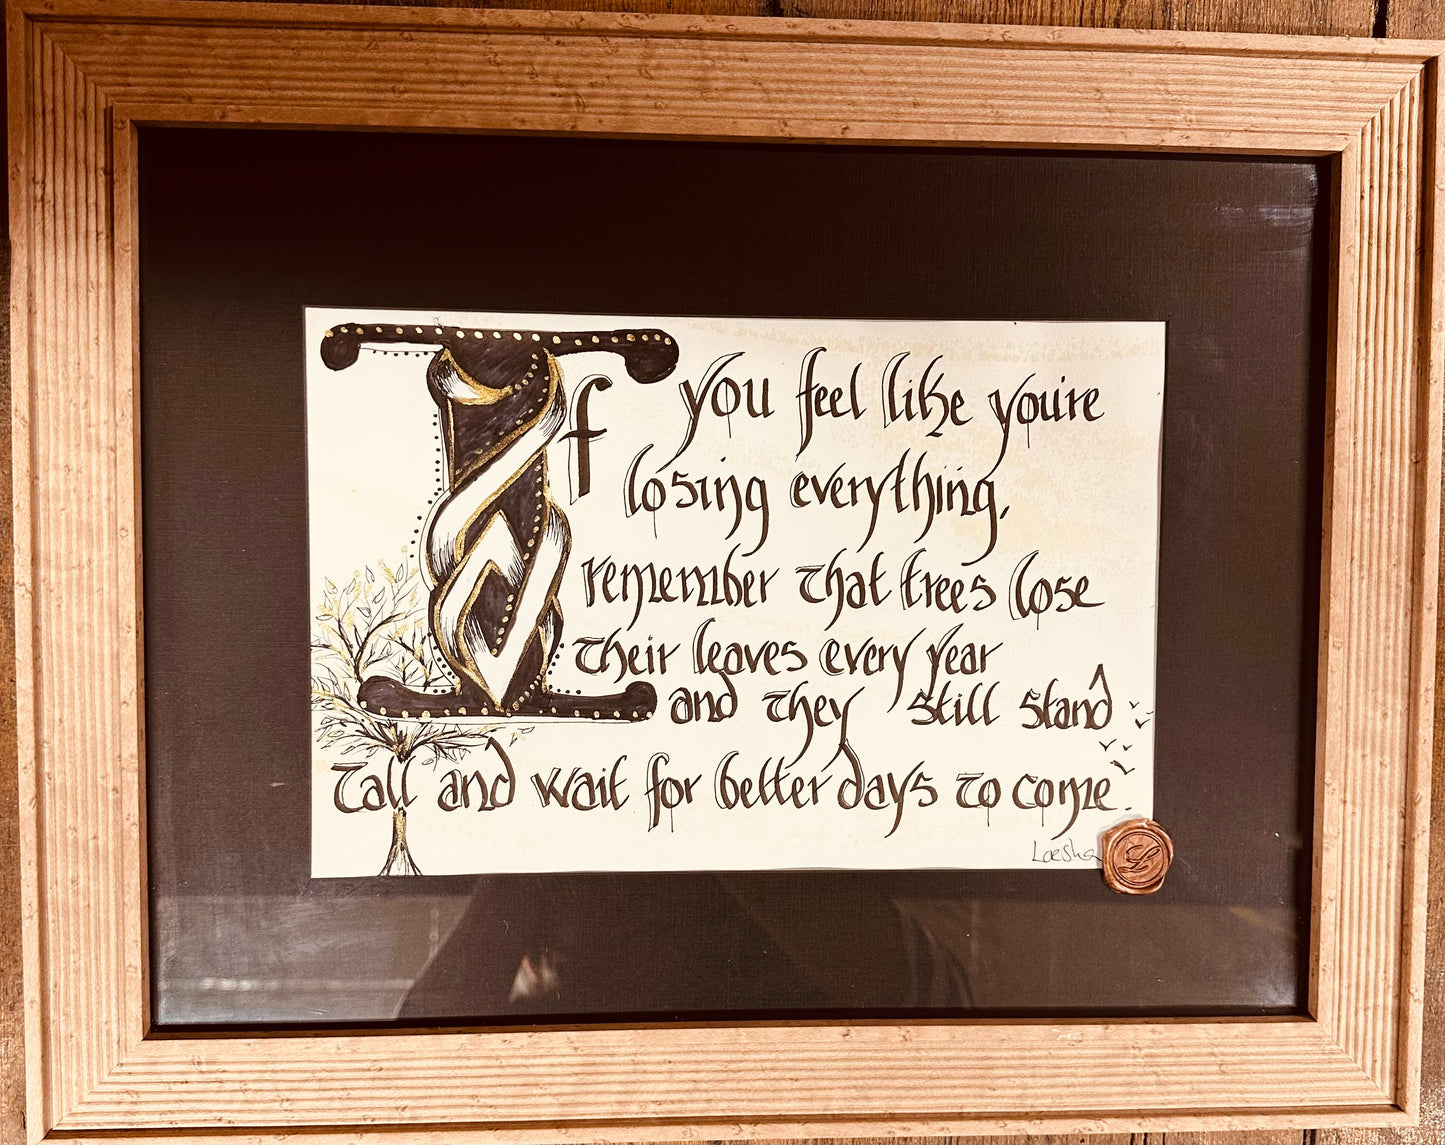 If you feel like you're
losing everything,
remember that trees lose
their leaves every year
and they still stand
tall and wait for better days to come.
Loesha
L